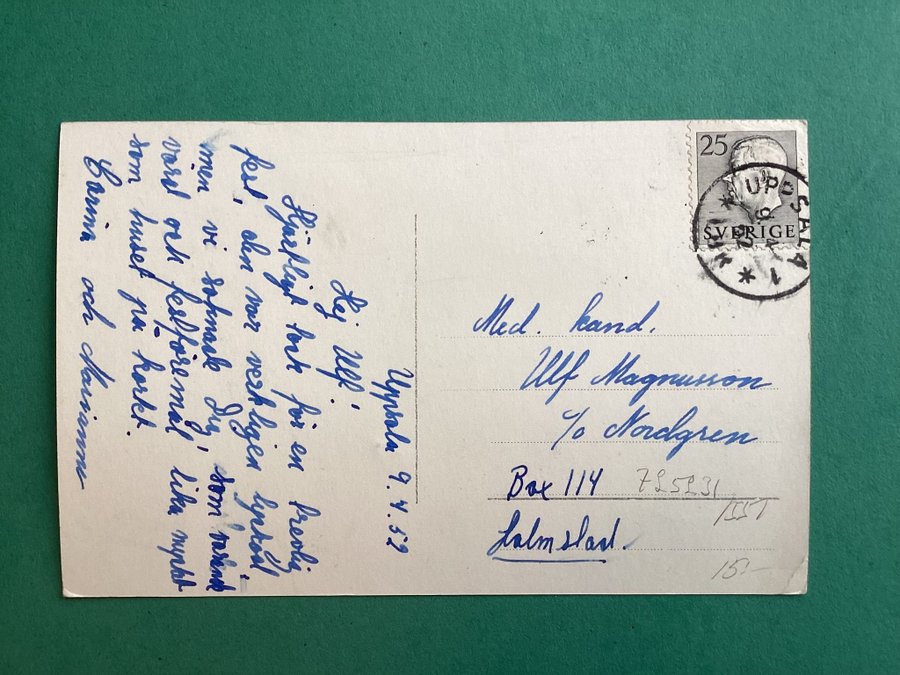 Uppsala 9.4.52
Hej Ulf!
Hjärtligt tack för en trevlig
fest, den var verkligen lyckad,
men vi saknade Dig, som
värd och festföremål, lika mycket
som huset på kortet.
och Marianne
25
SVERIGE
UPPSALA 1
Med. kand.
Ulf Magnusson
c/o Nordgren
Box 114
Halmstad.
15:-